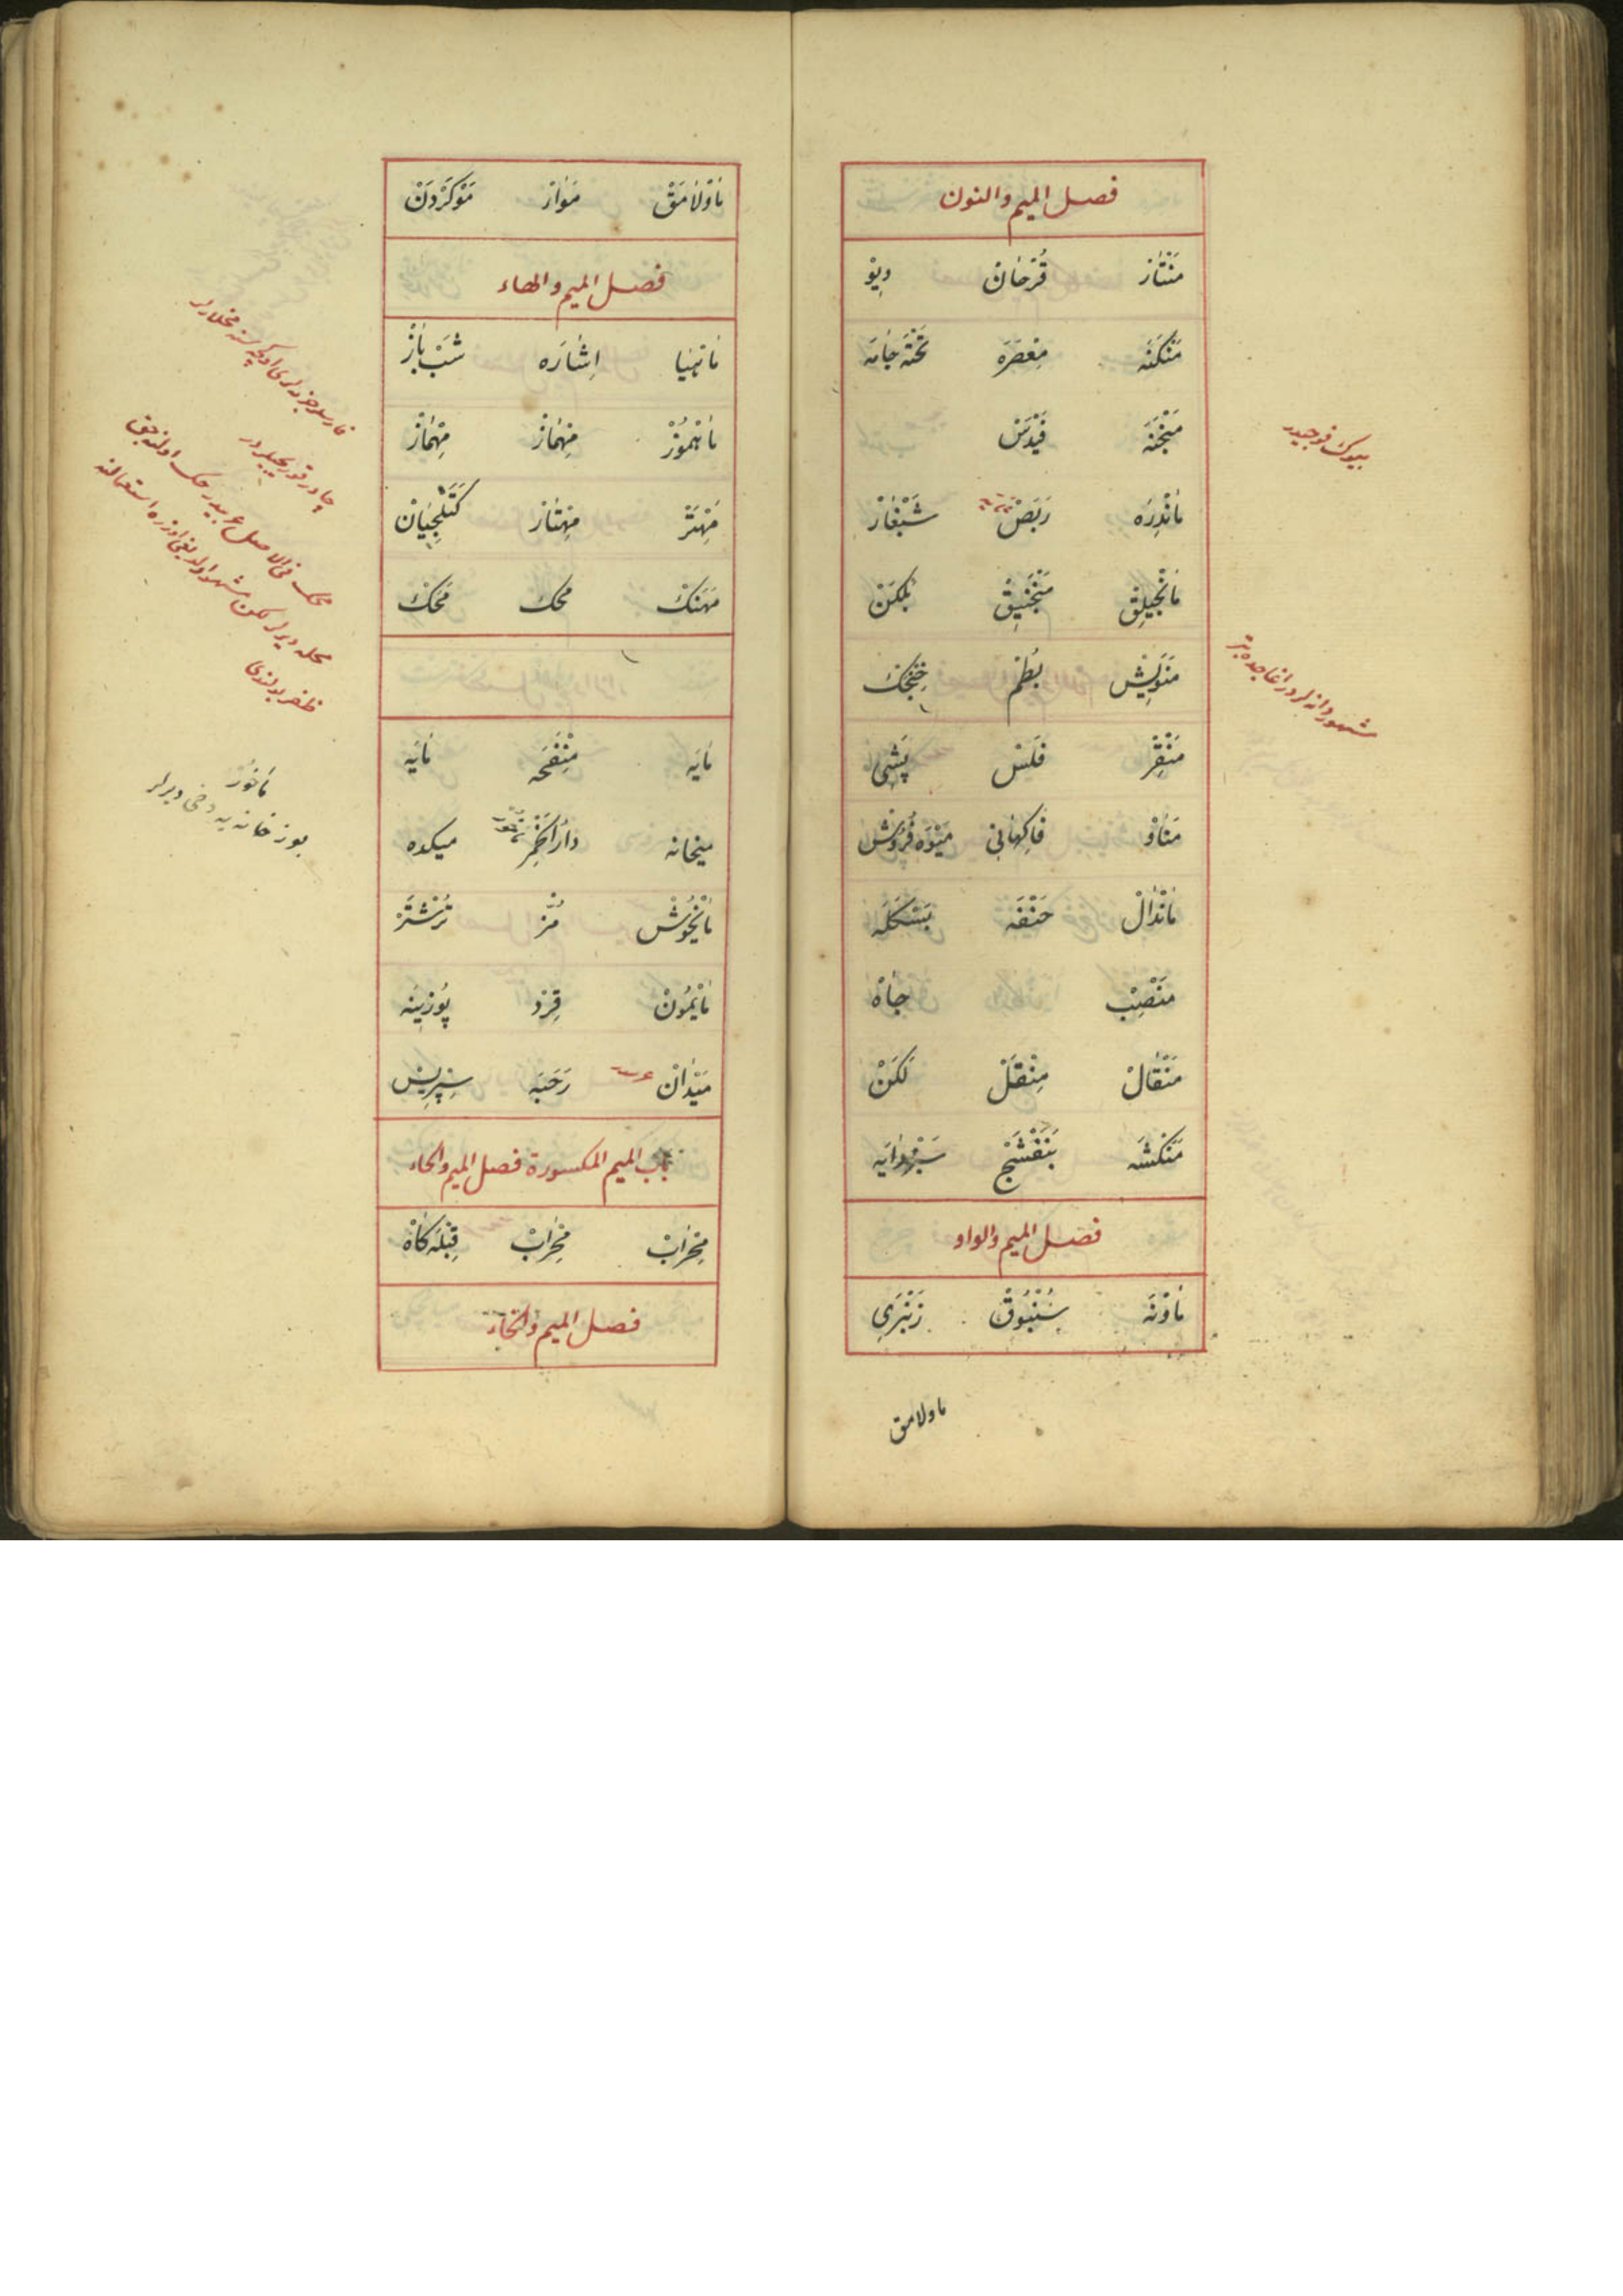 فصل الميم والنون
مَنْتَارْ قُرْحَانْ دِيوْ
مَنْكَنَه مِعْصَرَه تَخْتَه جَامَه
مَنْجَنَه فَيْدَسْ
مَانْدِرَه رَبَضْ شَبْغَازْ
مَانْجِيلِقْ مَنْجَنِيقْ بُلْكَنْ
مَنَوِيشْ بُطْمْ خِنْجِكْ
مَنْقِرْ فَلَسْ پَشِي
مَنَاوْ فَاكِهَانِي مَيْوَه فُرُوشْ
مَانْدَالْ خَنْفَه بَسْكَلَه
مَنْصِبْ جَاهْ
مَنْقَالْ مِنْقَلْ لَكَنْ
مَنَكْشَه بَنَفْشَجْ سَبْزْدَايَه
فصل الميم والواو
مَاوْنَه سُنْبُوقْ زَنْبَرِي
ماولامق
بيوك فوجيدر
مَاوْلَامَقْ مَوَازْ مَوْكَرْدَنْ
فصل الميم والهاء
مَاهِيَا اِشَارَه شَبْ بَازْ
مَاهْمُوزْ مِهْمَازْ مِهْمَازْ
مِهْتَرْ مِهْتَارْ كَتَلْچِيَانْ
مَهَنْكْ مِحَكْ مَحَكْ
مَايَه مِنْفَحَه مَايَه
ميخانه دَارُالْخَمْرْ ميكده
مَايْخُوشْ مُزّ تُرْشْتَرْ
مَايْمُونْ قِرْدْ پُوزِينَه
مَيْدَانْ رَحَبَه سِپْرِيسْ
باب الميم المكسورة فصل الميم والحاء
مِحْرَابْ مِحْرَابْ قِبْلَه كَاهْ
فصل الميم والخاء
چادر قوريجيلردر
مَاخُورْ
بوزخانه يه دخى ديرلر